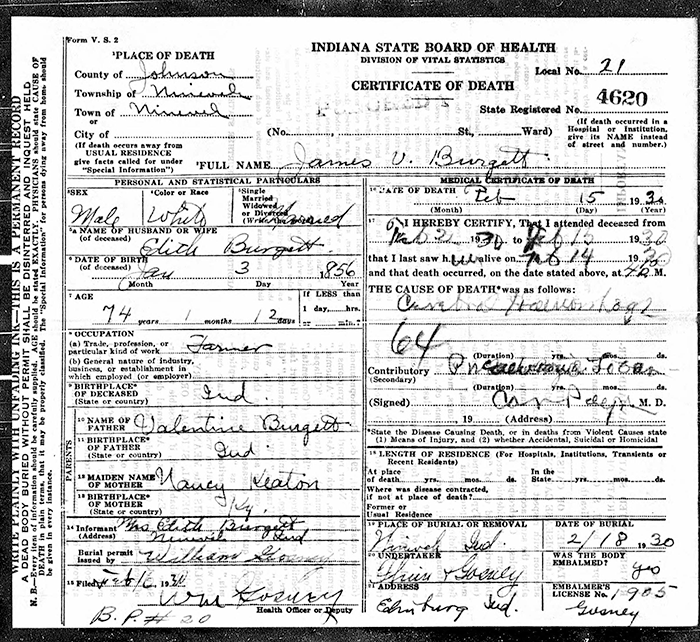 Form V. S. 2
INDIANA STATE BOARD OF HEALTH
DIVISION OF VITAL STATISTICS
CERTIFICATE OF DEATH
Local No. 21
State Registered No. 4620
(If death occurred in a Hospital or Institution, give its NAME instead of street and number.)
¹PLACE OF DEATH
County of Johnson
Township of Nineveh
Town of Nineveh
or
City of
(No. St., Ward)
(If death occurs away from USUAL RESIDENCE give facts called for under "Special Information")
²FULL NAME James V. Burgett
PERSONAL AND STATISTICAL PARTICULARS
³SEX Male
⁴Color or Race White
⁵Single Married Widowed or Divorced
⁵ᵃNAME OF HUSBAND OR WIFE
(of deceased) Burgett
⁶DATE OF BIRTH
(of deceased) Jan 3 1856
Month Day Year
⁷AGE
74 years 1 months 12 days
If LESS than
1 day, hrs.
or min.
⁸OCCUPATION
(a) Trade, profession, or particular kind of work Farmer
(b) General nature of industry, business, or establishment in which employed (or employer)
⁹BIRTHPLACE*
OF DECEASED
(State or country) Ind.
PARENTS
¹⁰NAME OF
FATHER Valentine Burgett
¹¹BIRTHPLACE*
OF FATHER
(State or country) Ind
¹²MAIDEN NAME
OF MOTHER Nancy Keaton
¹³BIRTHPLACE*
OF MOTHER
(State or country) Ky.
¹⁴Informant Mrs Burgett
(Address) Nineveh Ind
Burial permit
issued by William Gosney
¹⁵Filed Feb 16 1930
Wm Gosney
Health Officer or Deputy
B. P. # 20
MEDICAL CERTIFICATE OF DEATH
¹⁶DATE OF DEATH Feb 15 1930
(Month) (Day) (Year)
¹⁷I HEREBY CERTIFY, That I attended deceased
from 1930 to Feb 15 1930
that I last saw him alive on Feb 14 1930
and that death occurred, on the date stated above, at M.
THE CAUSE OF DEATH* was as follows:
Cerebral Hemorrhage
64
(Duration) yrs. mos. ds.
Contributory
(Secondary)
(Duration) yrs. mos. ds.
(Signed) M. D.
, 19 (Address)
*State the Disease Causing Death, or in deaths from Violent Causes state (1) Means of Injury, and (2) whether Accidental, Suicidal or Homicidal
¹⁸LENGTH OF RESIDENCE (For Hospitals, Institutions, Transients or Recent Residents)
At place
of death yrs. mos. ds.
In the
State yrs. mos. ds.
Where was disease contracted,
if not at place of death?
Former or
Usual Residence
¹⁹PLACE OF BURIAL OR REMOVAL
Nineveh Ind.
DATE OF BURIAL
2/18 1930
²⁰UNDERTAKER
& Gosney
WAS THE BODY EMBALMED? yes
²¹ADDRESS
Edinburg Ind.
EMBALMER'S
LICENSE No. 1905
Gosney
WRITE PLAINLY WITH UNFADING INK—THIS IS A PERMANENT RECORD
A DEAD BODY BURIED WITHOUT PERMIT SHALL BE DISINTERRED AND INQUEST HELD
N. B.—Every item of information should be carefully supplied. AGE should be stated EXACTLY. PHYSICIANS should state CAUSE OF DEATH in plain terms, that it may be properly classified. The "Special Information" for persons dying away from home should be given in every instance.